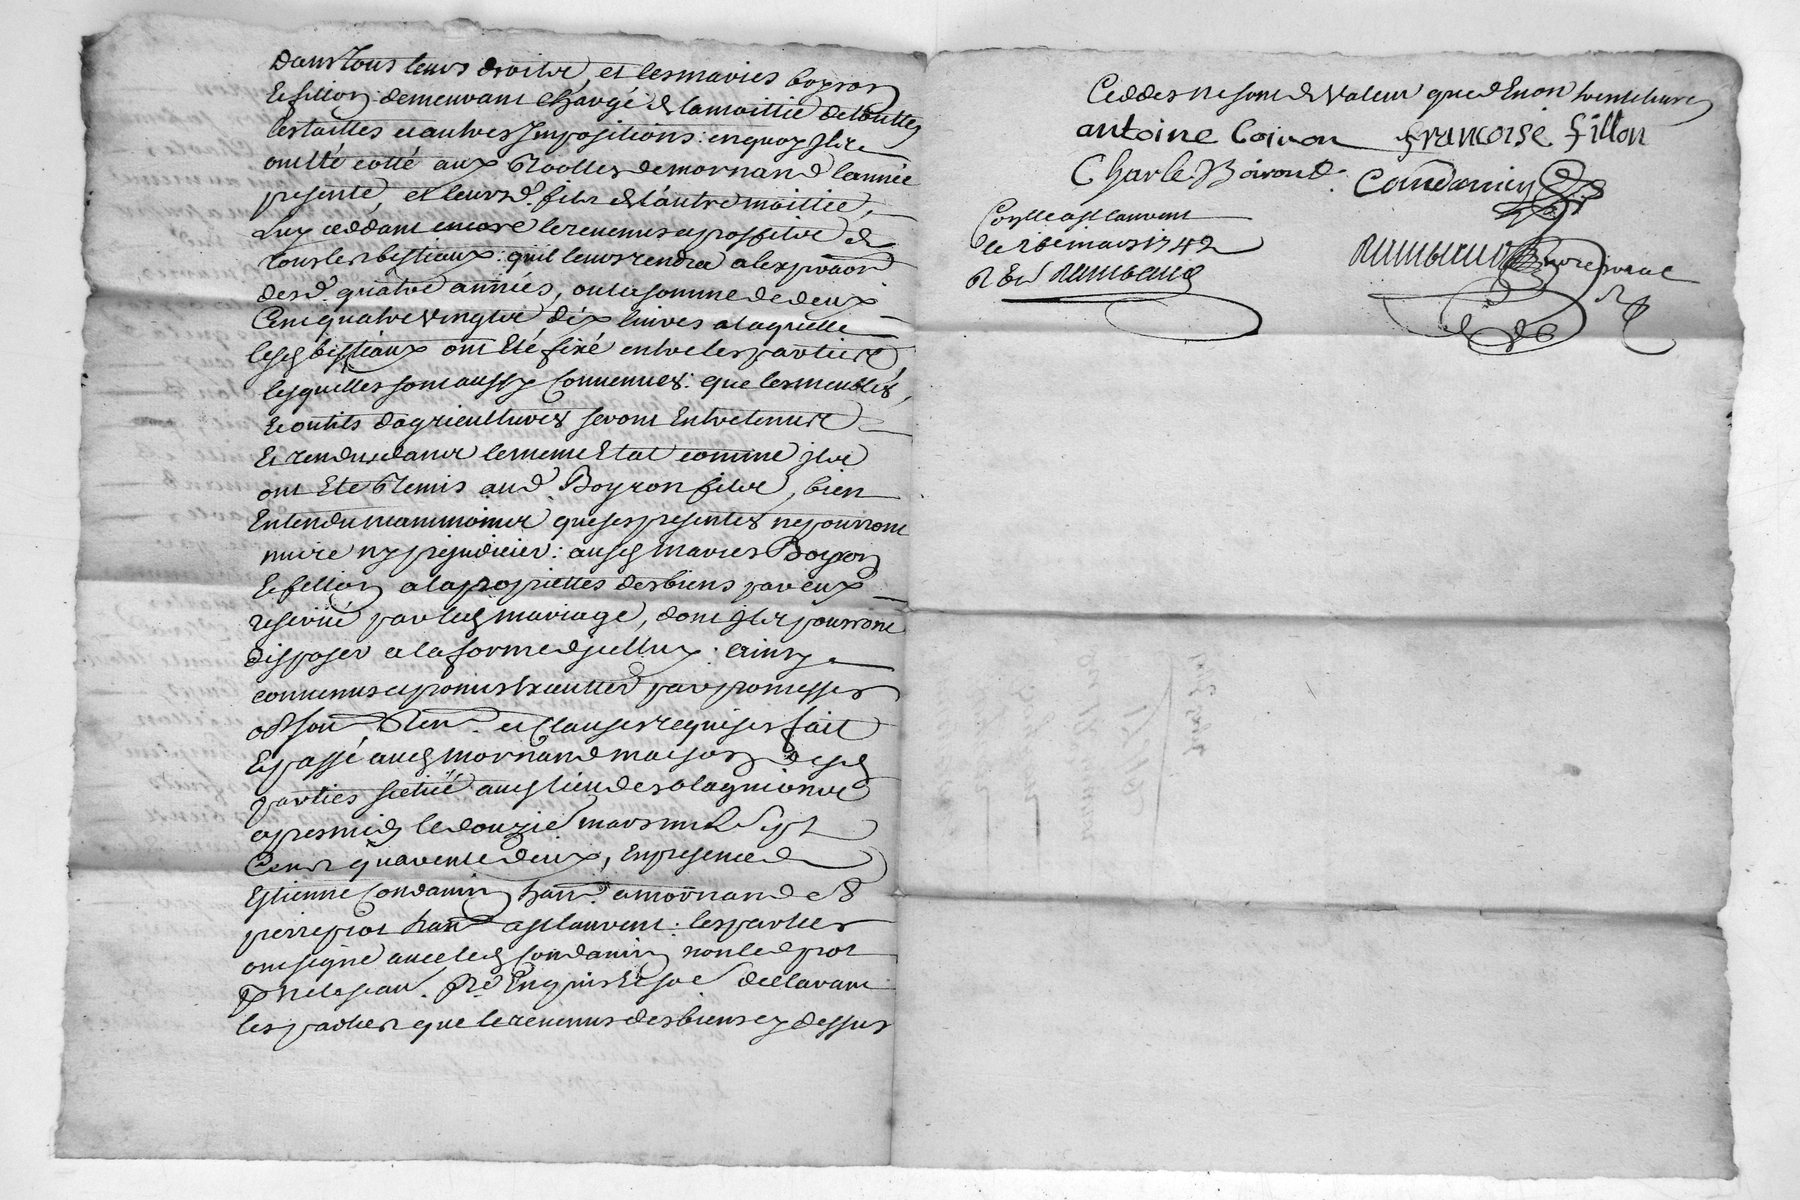 dans tous leurs droits, et les maries boyron
et fillon demeurant chargé de la moittié de touttes
les tailles et autres Impositions: en quoy Ils
ont été cotté aux Roolles de mornand lannée
presente, et leurd. fils de l'autre moittié,
luy ceddant encore les revenus et proffits de
tous les bestiaux: qu'il leurs rendra a lexpiraon
desd. quatre années, ou la somme de deux
Cent quatre vingts dix livres a laquelle
lesd bestiaux ont été fixé entre les parties
lesquelles sont aussy convenues: que les meubles,
et outils dagricultures seront Entretenus
Et rendus dans le meme Etat comme Ils
ont Eté Remis aud. Boyron fils, bien
Entendu neammoins que ses presentes ne pourront
nuire ny prejudicier: ausd maries Boyron
et fillon a la propriettes des biens par eux
reservé par led mariage, dont Ils pourront
disposer a la forme dicelluy. ainsy
convenus et promis Exeutter par promesses
obson Ren. et Clauses requises fait
Et passé aud mornand maison desd
parties scittué aud lieu des
apres midy le douzie mars mil sept
Cents quarente deux, En presence de
Estienne Condamin han. a mornand et
pierre piot han a st laurent: les parties
ont signé avec led Condamin non led piot
p ne le scav. Re Enquis Et soe declarant
les parties que le revenus des biens cy dessus
Ceddes ne sont de Valeur que d'Environ trente livres
antoine Coiron francoise fillon
Charle Boiron Condamin
Conlle a st laurent
le mars 1742
R Rambaud
Rambaud